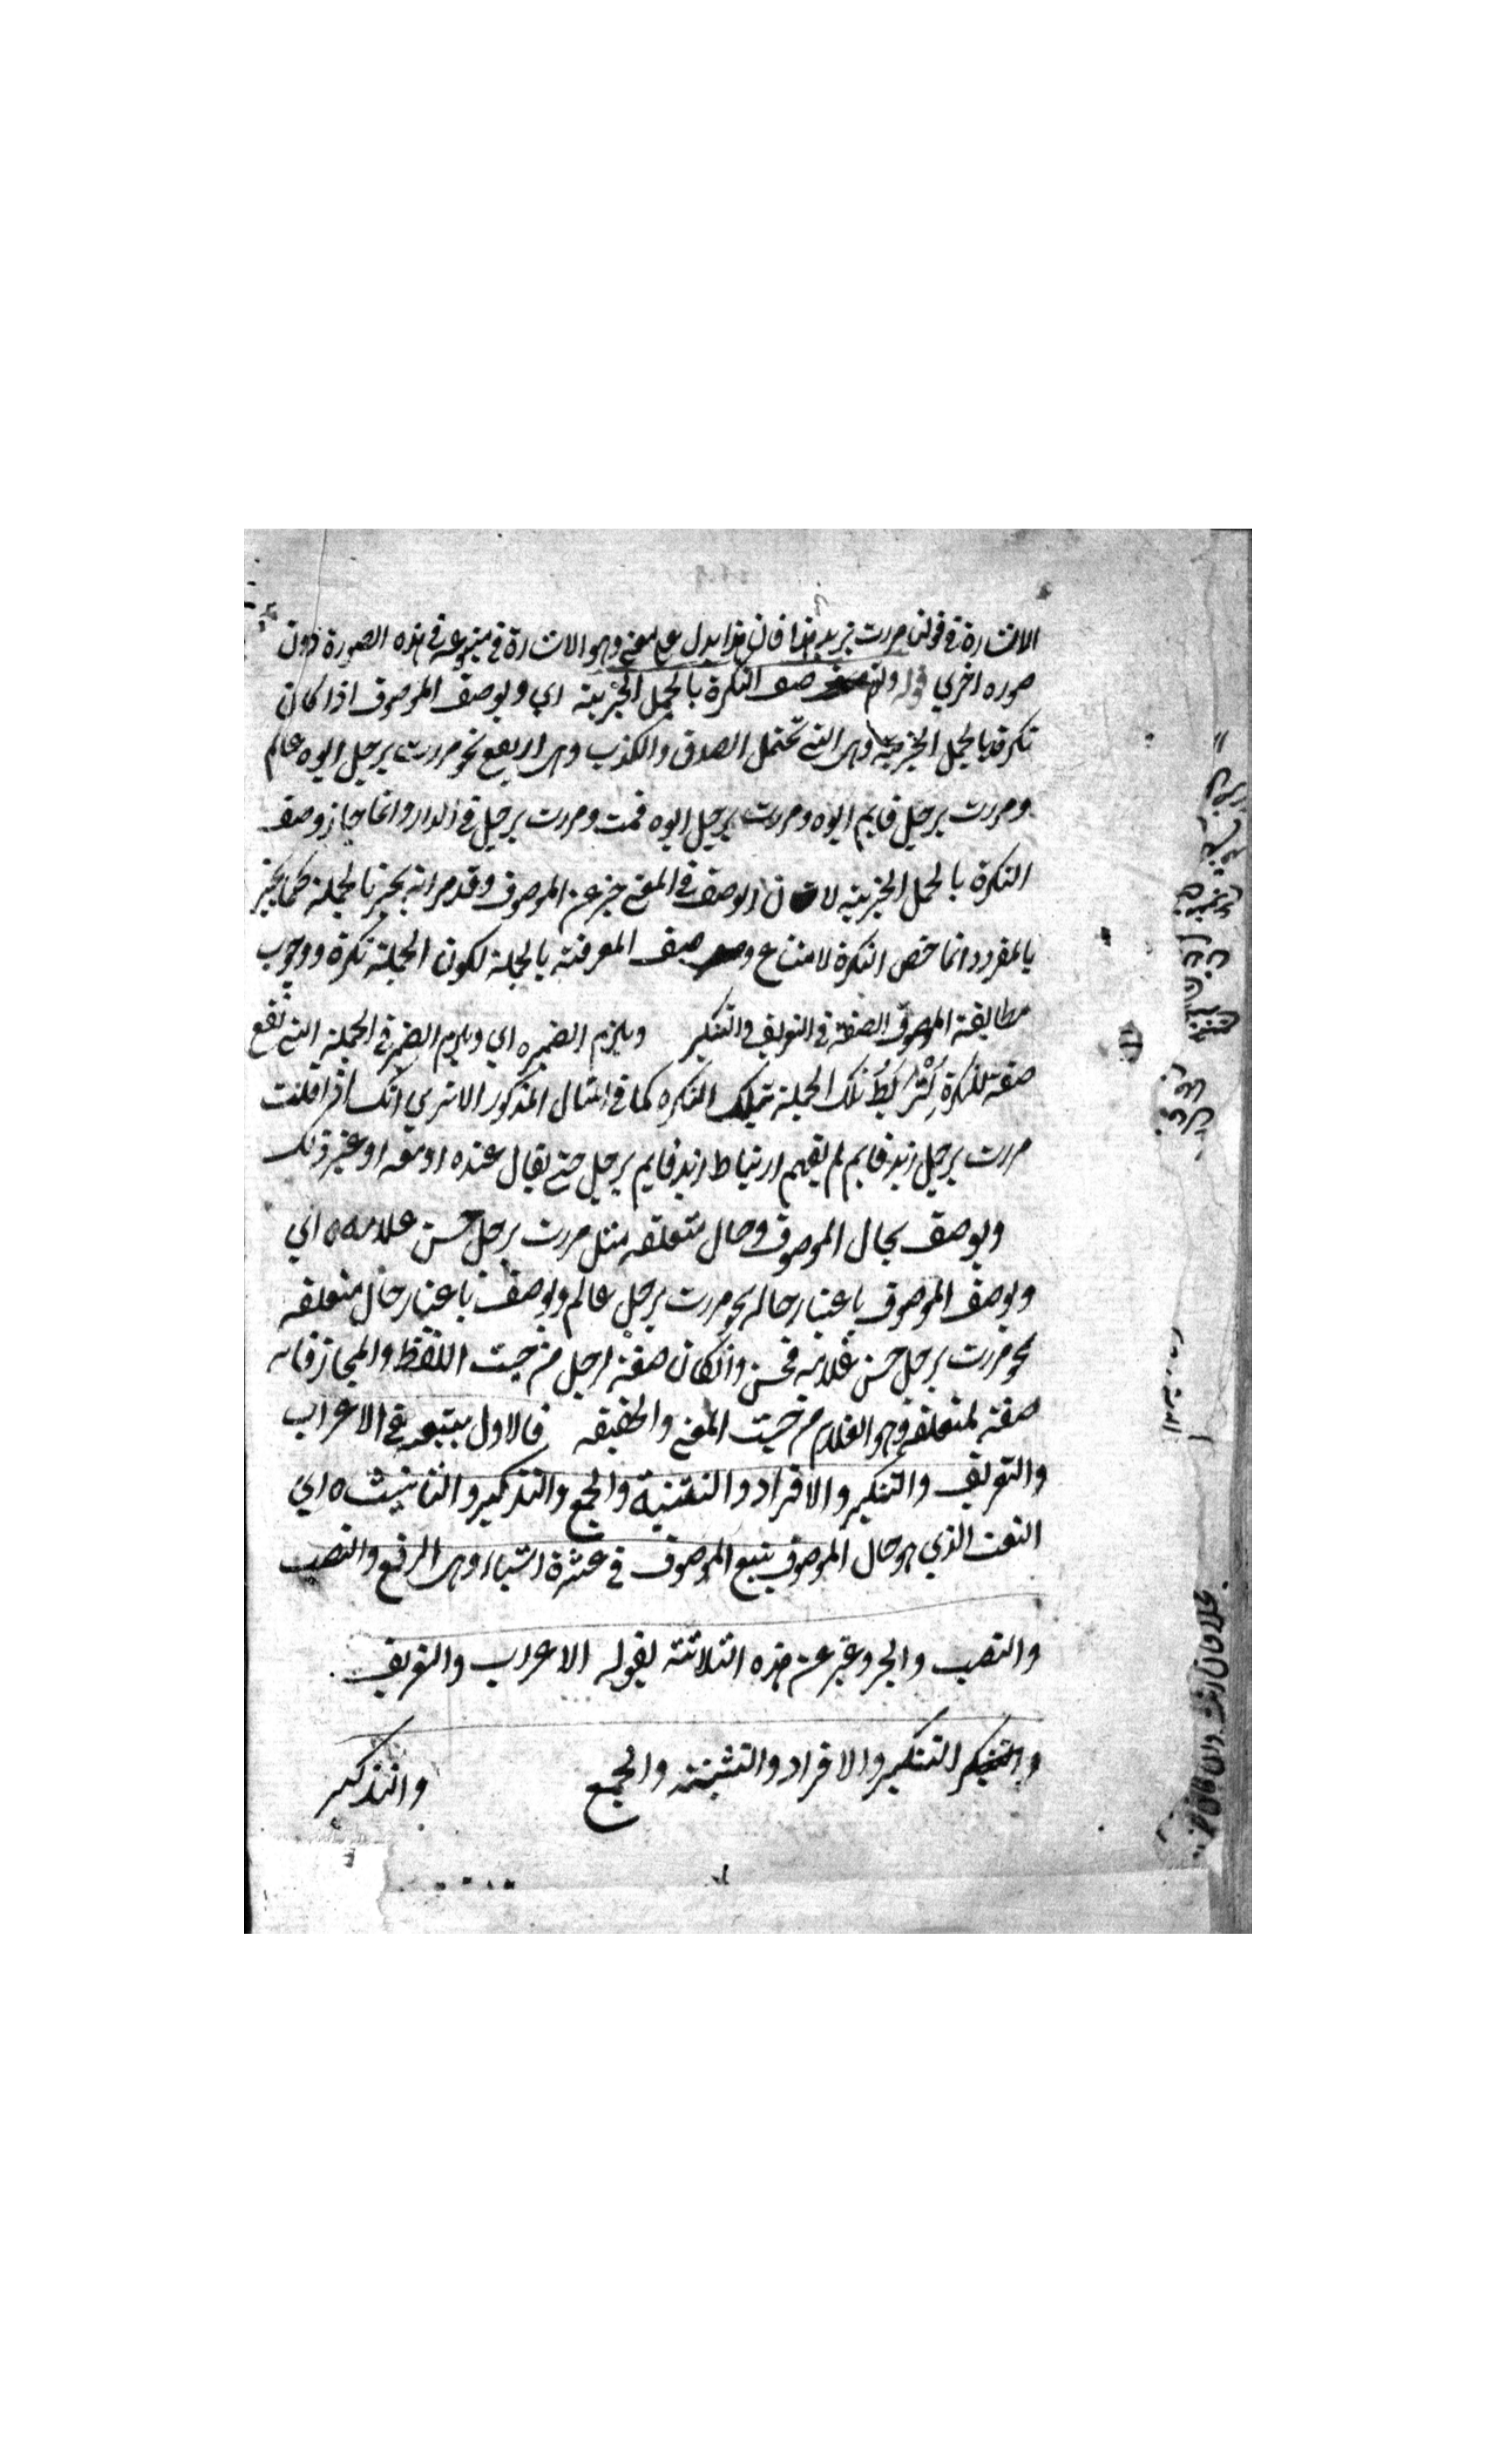 الاشارة في قولنا مررت بزيد هذا فان هذا يدل على معنى وهو الاشارة في متبوعه في هذه الصورة دون
صوره اخري قوله وتوصف النكرة بالجمل الخبرية اي ويوصف الموصوف اذا كان
نكرة بالجمل الخبرية وهي التي تحتمل الصدق والكذب وهي اربع نحو مررت برجل ابوه عالم
ومررت برجل قايم ابوه ومررت برجل ابوه قمت ومررت برجل في الدار وانما جاز وصف
النكرة بالجمل الخبرية لان الوصف في المعنى خبر عن الموصوف وقد مر انه يخبر بالجملة كما يخبر
بالمفرد وانما خص النكرة لامتناع وصف المعرفة بالجملة لكون الجملة نكرة ووجوب
مطابقة الموصوف الصفة في التعريف والتنكير ويلزم الضميره اي ويلزم الضمير في الجملة التي تقع
صفة للنكرة لتربط تلك الجملة بتلك النكره كما في المثال المذكور الا تري انك اذا قلت
مررت برجل زيد قايم لم يفهم ارتباط زيد قايم برجل حتى يقال عنده او معه او غير ذلك
ويوصف بحال الموصوف وحال متعلقه مثل مررت برجل حسن غلامه ه اي
ويوصف الموصوف باعتبار حاله نحو مررت برجل عالم ويوصف باعتبار حال متعلقه
نحو مررت برجل حسن غلامه فحسن وان كان صفة لرجل من حيث اللفظ والمجاز فانه
صفة لمتعلقه وهو الغلام من حيث المعنى والحقيقه فالاول يتبعه في الاعراب
والتعريف والتنكير والافراد والتثنية والجمع والتذكير والتانيث ه اي
النعت الذي هو حال الموصوف يتبع الموصوف في عشرة اشياء وهي الرفع والنصب
والنصب والجر وعبر عن هذه الثلاثة بقوله الاعراب والتعريف
والتنكير التنكير والافراد والتثنية والجمع والتذكير